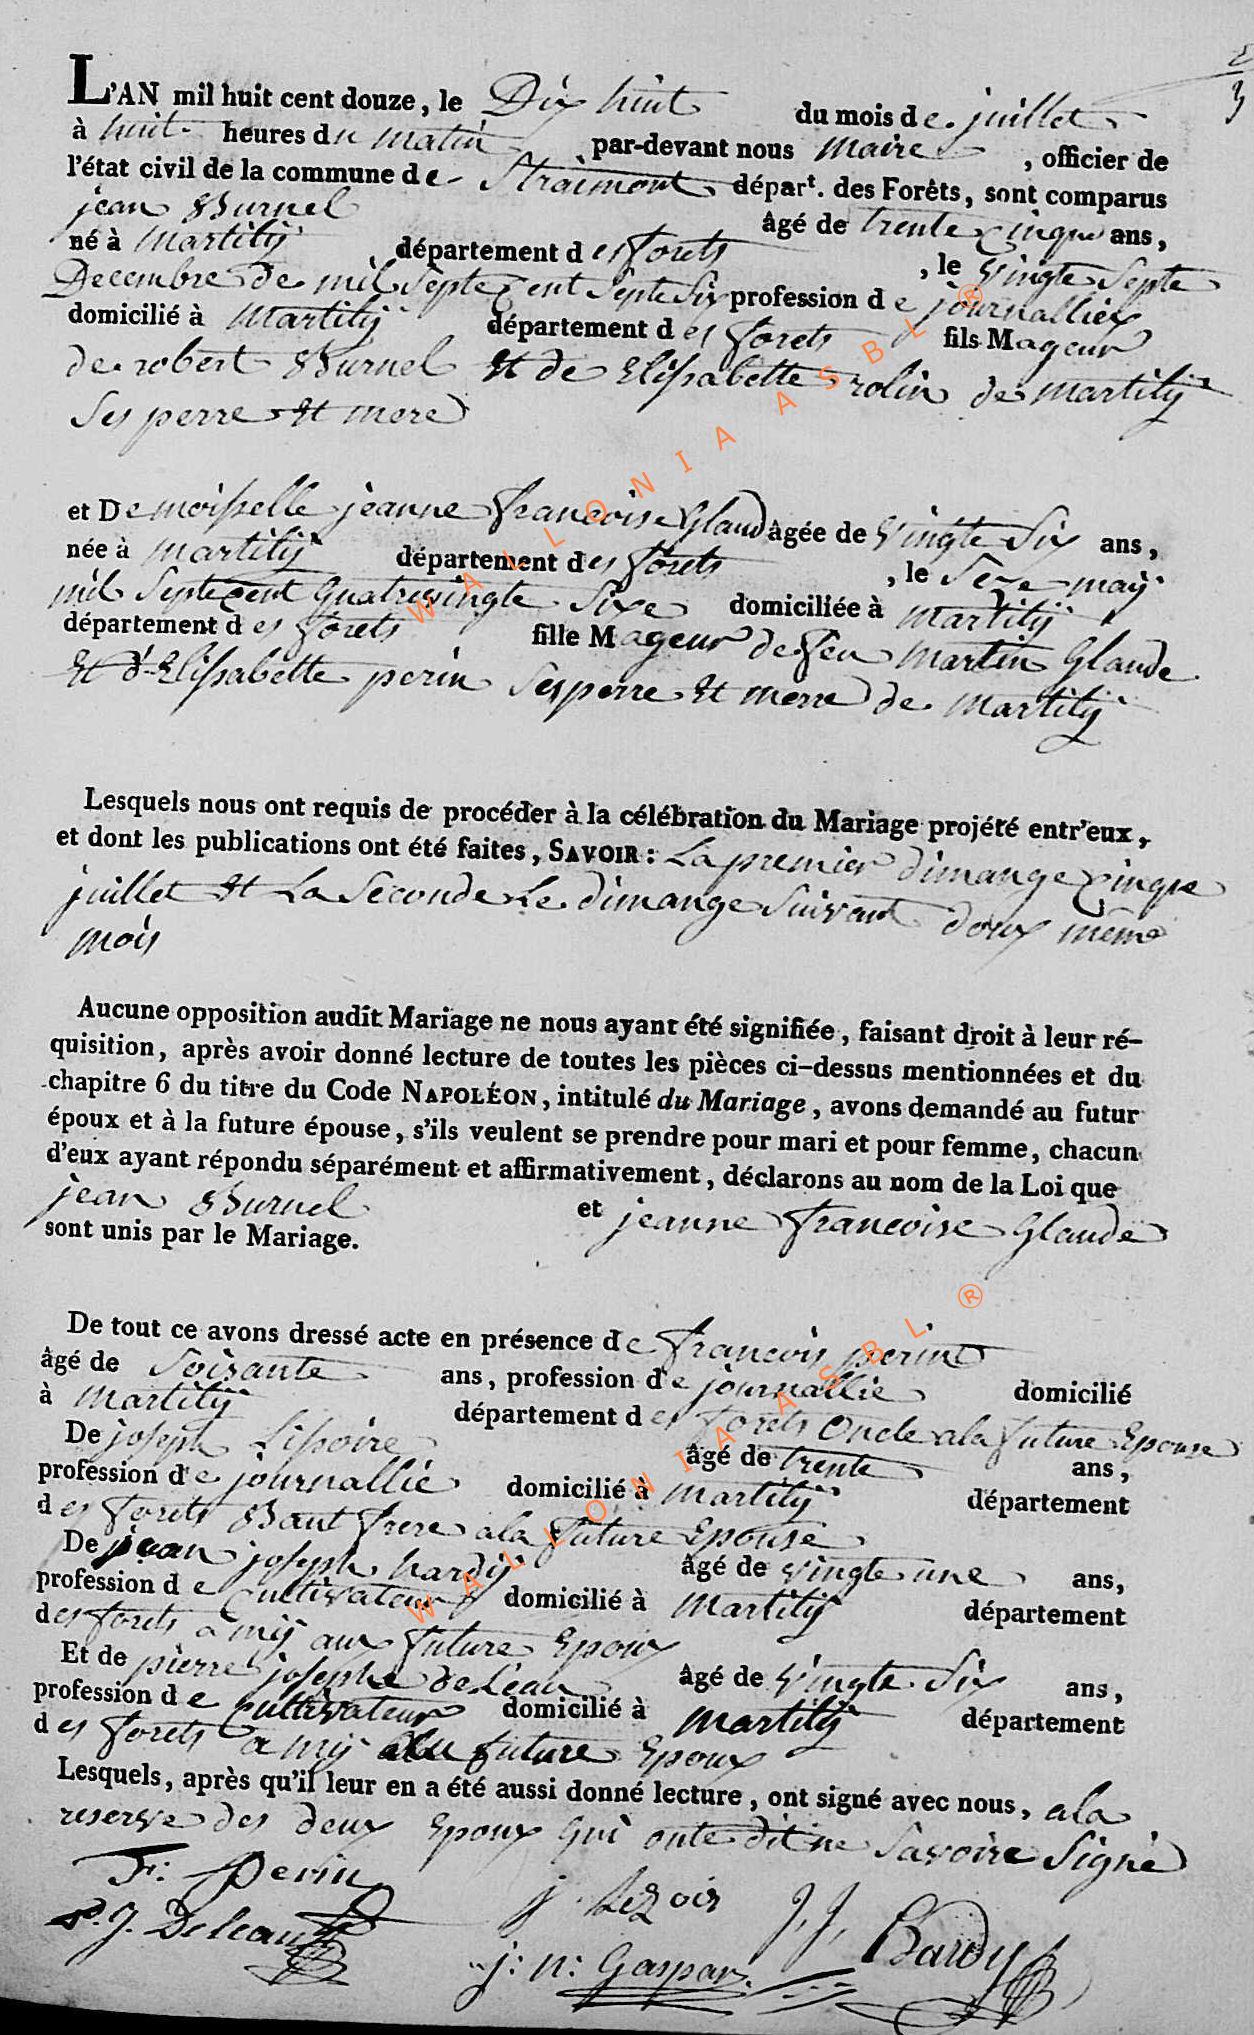 L'AN mil huit cent douze, le Dix huit du mois de juillet
à huit heures du matin par-devant nous maire, officier de
l'état civil de la commune de Straimont départ. des Forêts, sont comparus
jean Burnel âgé de trente cinque ans,
né à martilij département des forets, le vingte septe
Decembre de mil septe cent septe six profession de journallier
domicilié à Martilij département des forets fils Mageur
de robert Burnel et de Elissabette rolin de martilij
Ses perre et mere
et Demoisselle jeanne francoise Glaud âgée de vingte six ans,
née à martilij département des forets, le seze maij
mil septe cent quatrevingte sixe domiciliée à martilij
département des forets fille Mageur de feu martin Glaude
et d'Elissabette perin ses perre et merre de martilij
Lesquels nous ont requis de procéder à la célébration du Mariage projété entr'eux,
et dont les publications ont été faites, SAVOIR : La premier dimange cinque
juillet et La Seconde Le dimange suivant doux même
mois
Aucune opposition audit Mariage ne nous ayant été signifiée, faisant droit à leur ré-
quisition, après avoir donné lecture de toutes les pièces ci-dessus mentionnées et du
chapitre 6 du titre du Code NAPOLÉON, intitulé du Mariage, avons demandé au futur
époux et à la future épouse, s'ils veulent se prendre pour mari et pour femme, chacun
d'eux ayant répondu séparément et affirmativement, déclarons au nom de la Loi que
jean Burnel et jeanne francoise Glaude
sont unis par le Mariage.
De tout ce avons dressé acte en présence de francois perin
âgé de soisante ans, profession de journallie domicilié
à martilij département des forets oncle a la future Epouse
De joseph Lissoire âgé de trente ans,
profession de journallie domicilié à martilij département
des forets Baut frere a la future Epouse
De jean joseph hardij âgé de vingte une ans,
profession de Cultivateur domicilié à martilij département
des forets amij aux future Epoux
Et de pierre josephe deleau âgé de vingte six ans,
profession de Cultivateur domicilié à martilij département
des forets amij au future Epoux
Lesquels, après qu'il leur en a été aussi donné lecture, ont signé avec nous, a la
reserve des deux Epoux qui onte dit ne savoire signé
F: Perin
j. Lezoir J, J, Hardy
P. J. Deleau
j: n: Gaspar
WALLONIA ASBL ®
WALLONIA ASBL ®